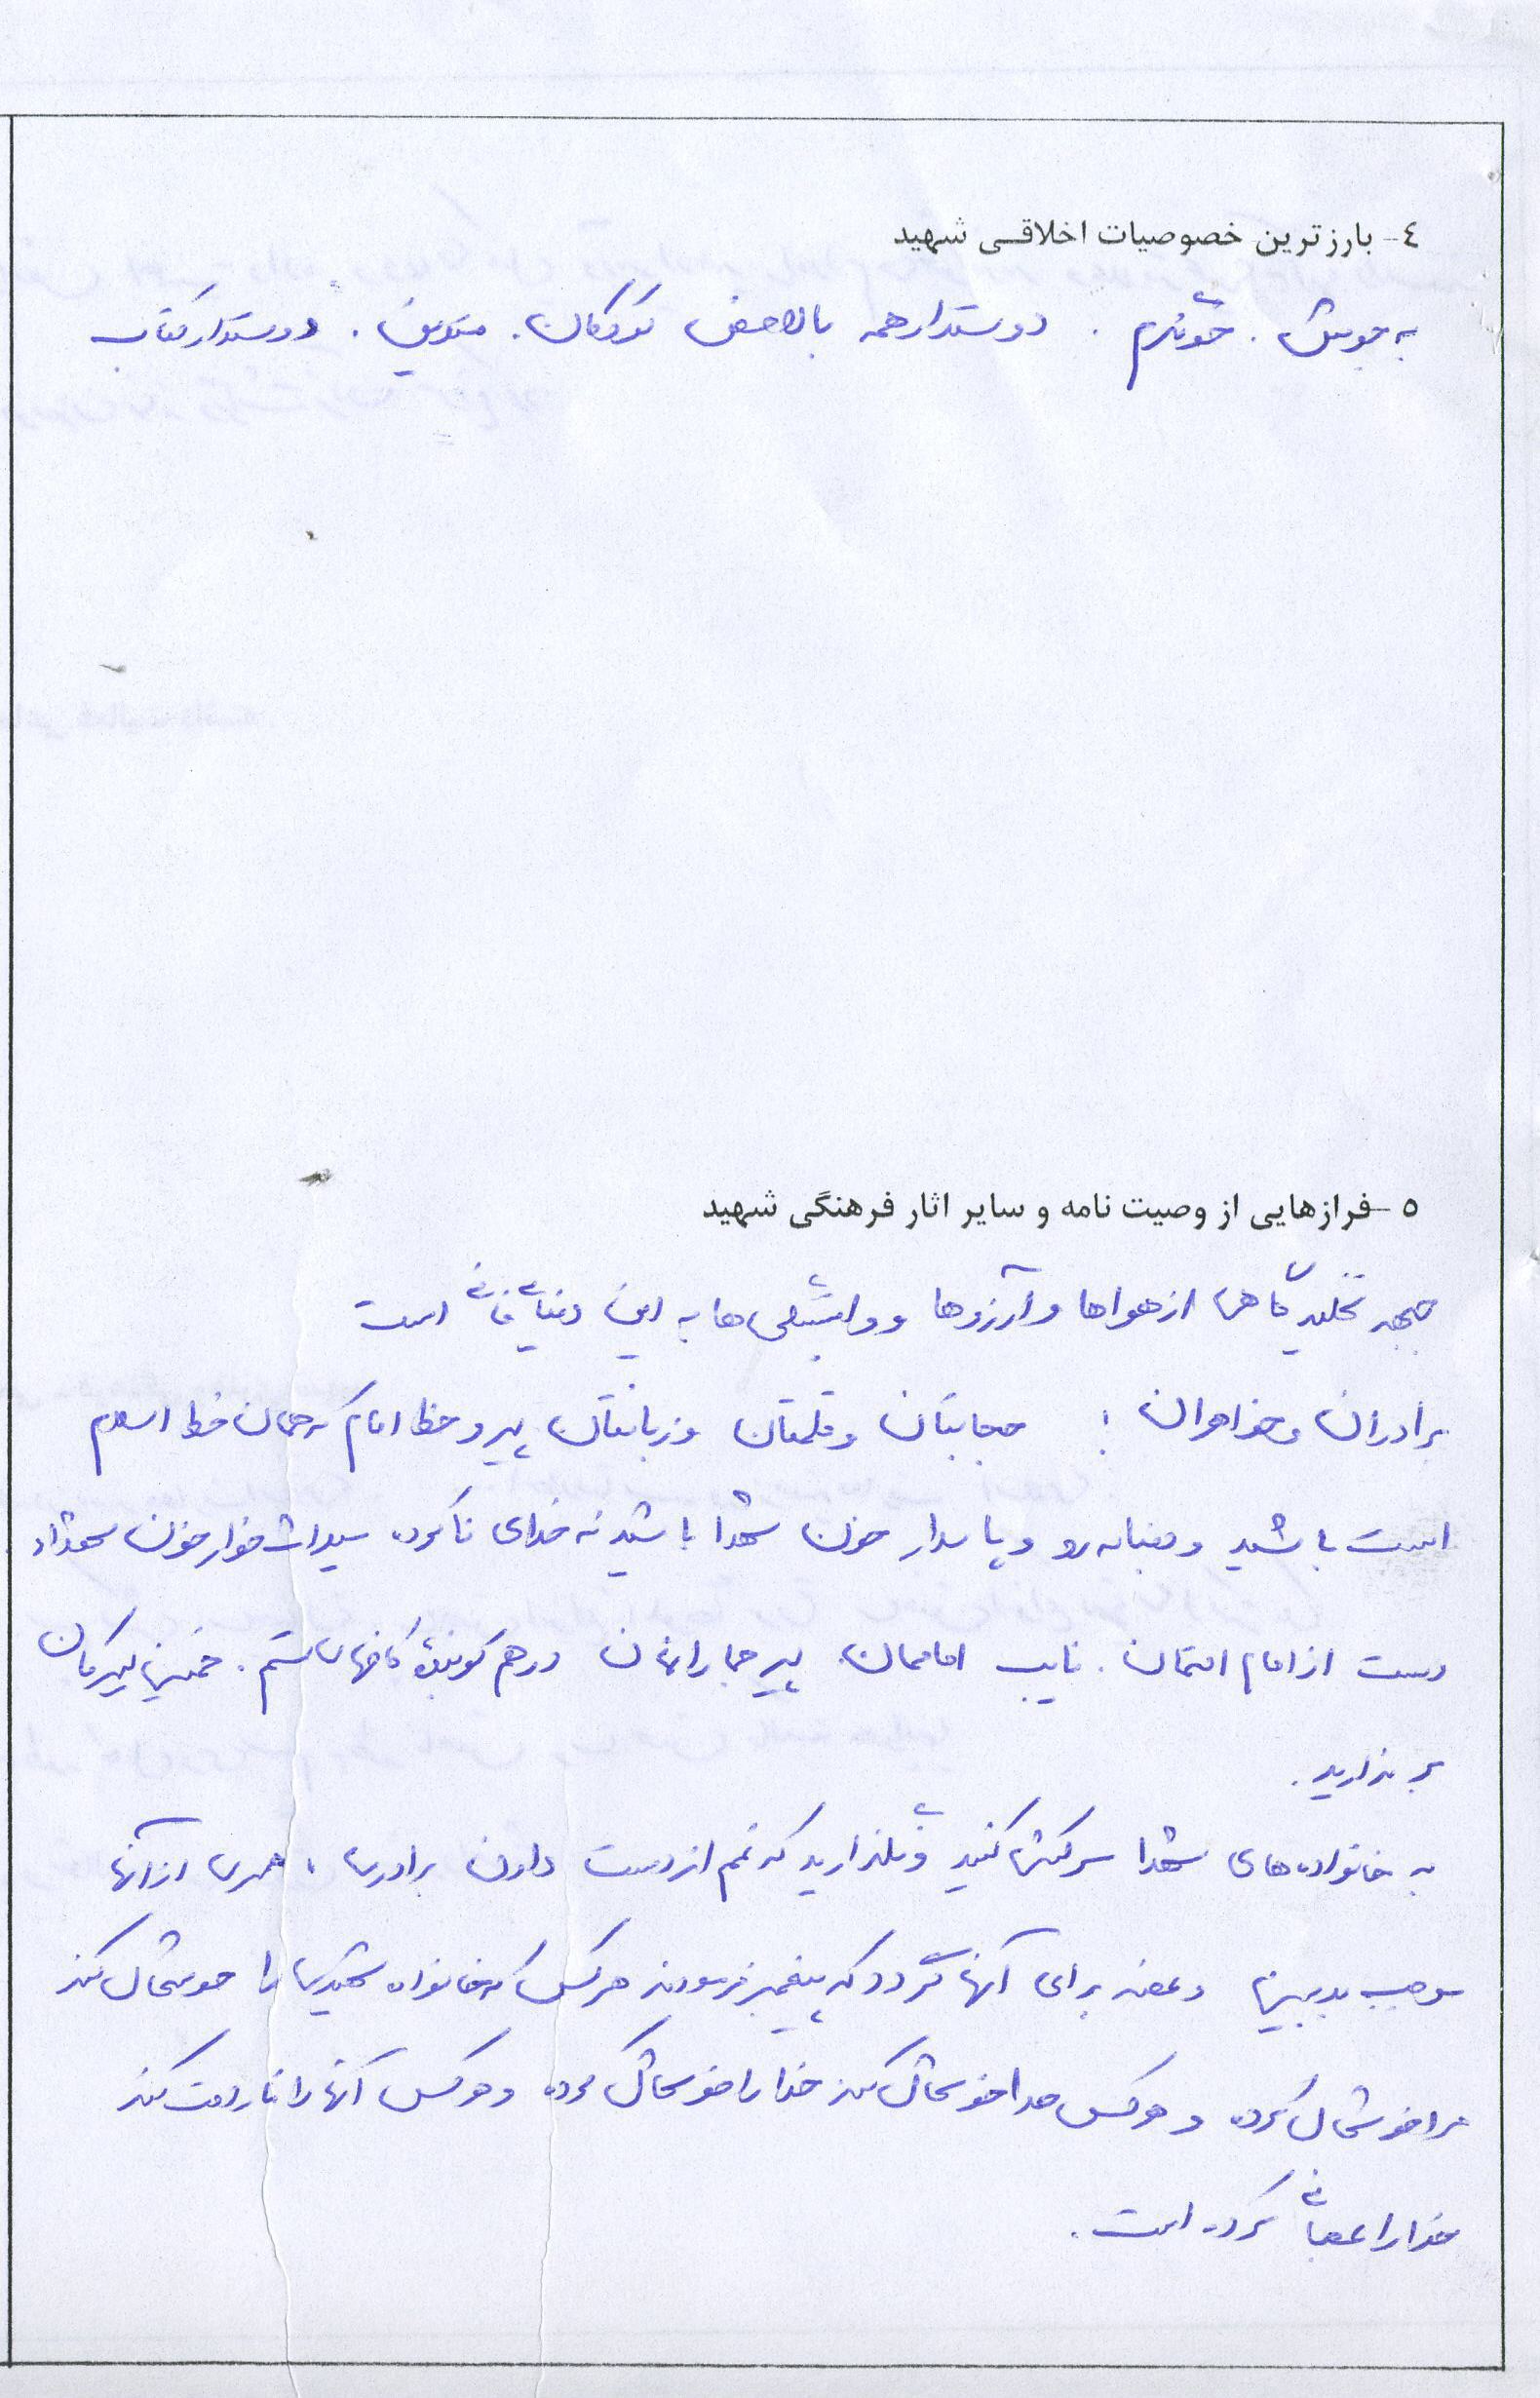 ٤- بارزترین خصوصیات اخلاقی شهید
پرجوش . خونگرم . دوستدار همه بالاخص کودکان . متدین . دوستدار کتاب
٥- فرازهایی از وصیت نامه و سایر اثار فرهنگی شهید
جبهه تخلیه گاهی از هواها و آرزوها و وابستگی ها به این دنیای فانی است
برادران و خواهران ! حجابتان و قلمتان و زبانتان پیرو خط امام که همان خط اسلام
است باشید و دنباله رو و پاسدار خون شهدا باشید نه خدای ناکرده میراث خوار خون شهدا،
دست از امام امتمان . نایب اماممان پیر جمارانمان درهم کوبنده کاخهای ستم . خمینی کبیرمان
بر ندارید .
به خانواده های شهدا سرکشی کنید و نگذارید که غم از دست دادن برادری ، همسری از آنها
موجب بدبینی وعقده برای آنها گردد که پیغمبر فرمودند هرکس که خانواده شهیدی را خوشحال کند
مرا خوشحال کرده و هرکس مرا خوشحال کند خدا را خوشحال کرده و هرکس آنها را ناراحت کند
خدا را عصبانی کرده است .